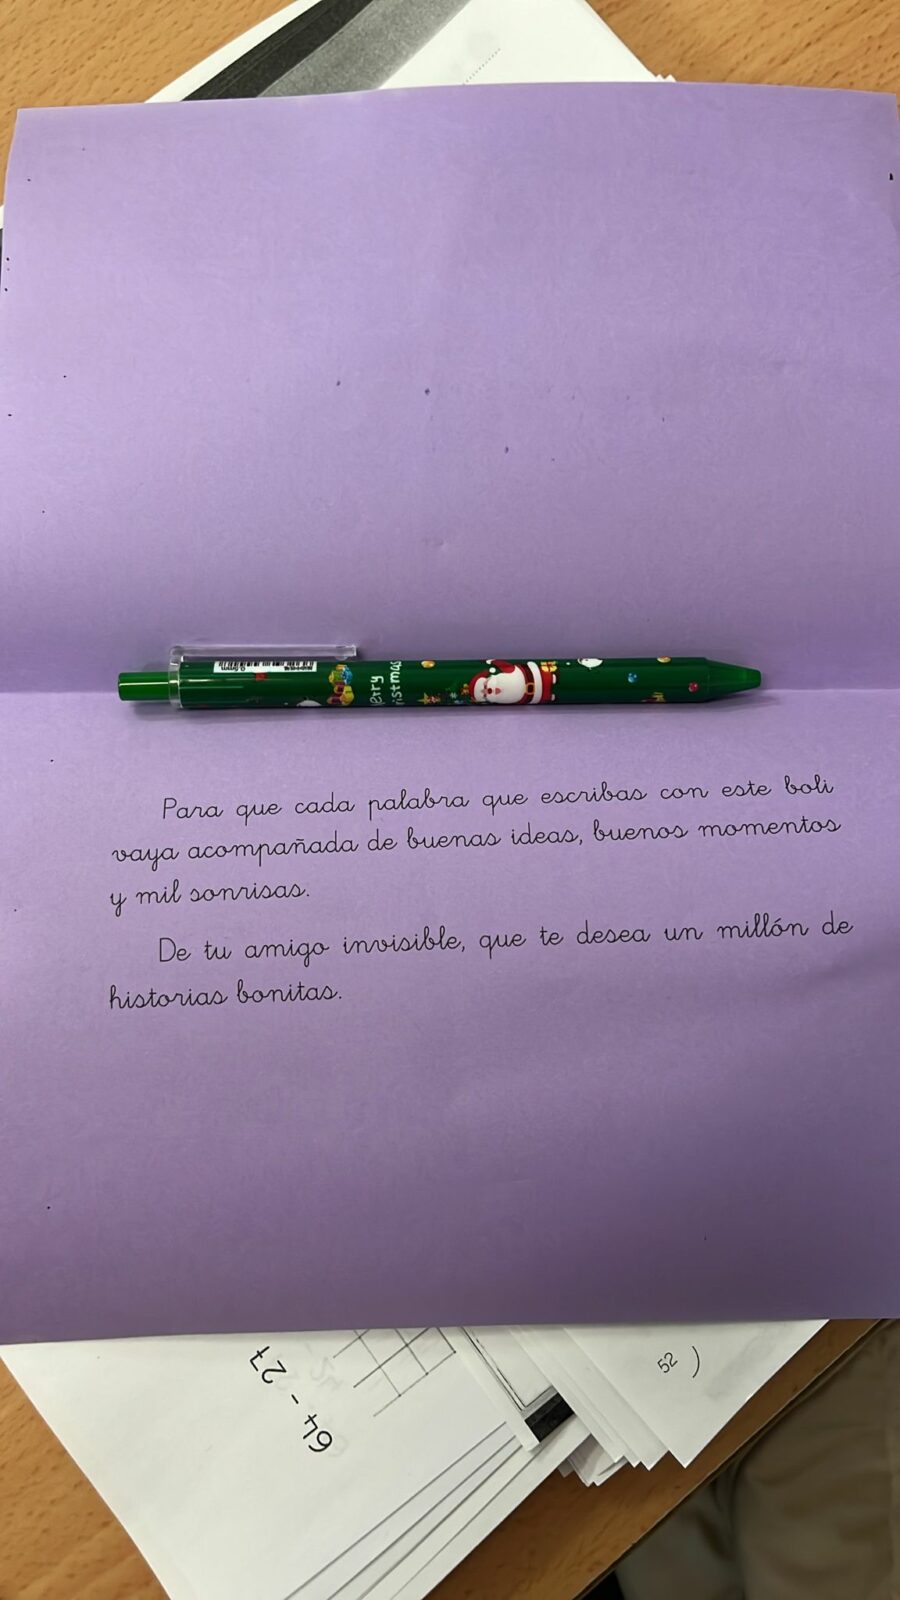 erry
ristmas
Para que cada palabra que escribas con este boli
vaya acompañada de buenas ideas, buenos momentos
y mil sonrisas.
De tu amigo invisible, que te desea un millón de
historias bonitas.
64 - 27
52 )